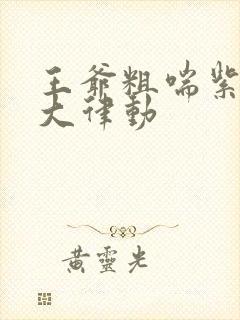 王爺粗喘紫
大律動
黃靈光